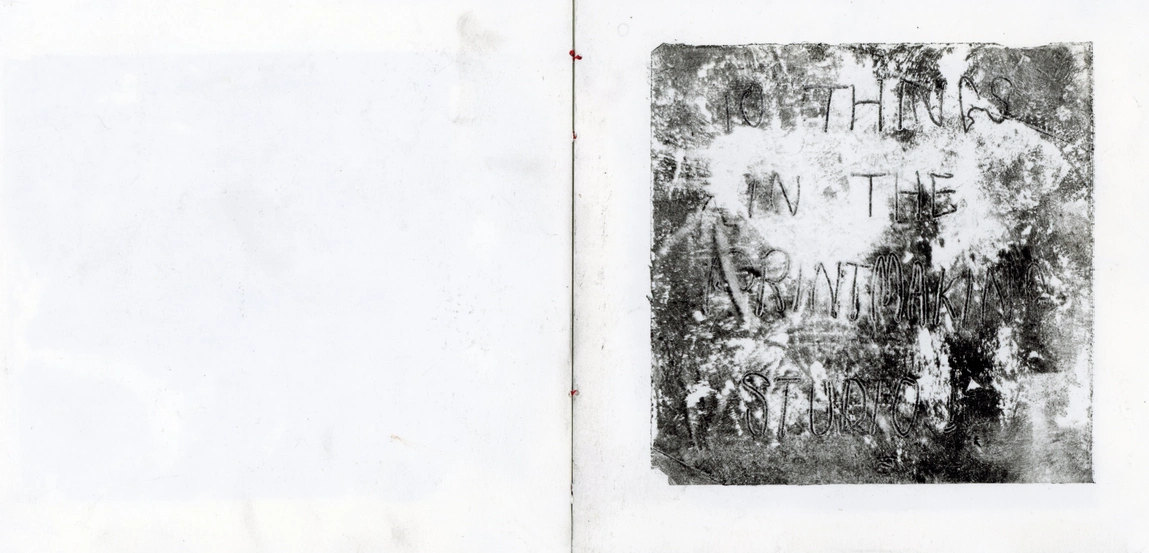 10 THINGS
IN THE
PRINTMAKING
STUDIO